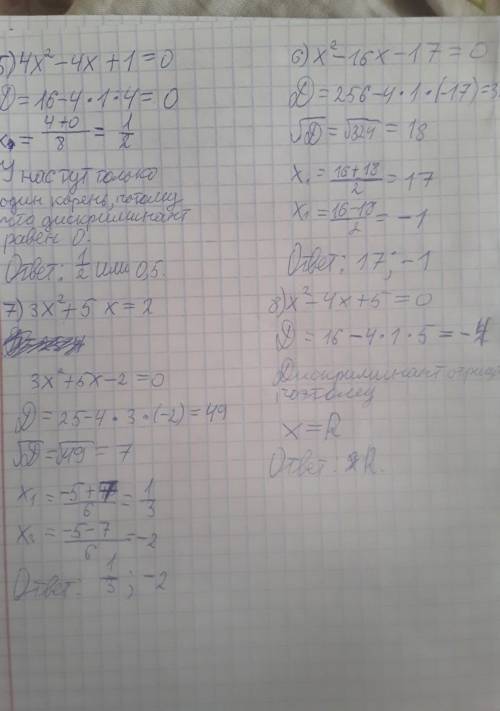 5) 4x² - 4x + 1 = 0
D = 16 - 4 * 1 * 4 = 0
x = (4+0)/8 = 1/2
У нас тут только
один корень, потому
что дискриминант
равен 0.
Ответ: 1/2 или 0,5.
7) 3x² + 5x = 2
3x² + 5x - 2 = 0
D = 25 - 4 * 3 * (-2) = 49
√D = √49 = 7
x₁ = (-5+7)/6 = 1/3
x₂ = (-5-7)/6 = -2
Ответ: 1/3 ; -2
6) x² - 16x - 17 = 0
D = 256 - 4 * 1 * (-17) = 3
√D = √324 = 18
x₁ = (16+18)/2 = 17
x₁ = (16-18)/2 = -1
Ответ: 17 ; -1
8) x² - 4x + 5 = 0
D = 16 - 4 * 1 * 5 = -4
Дискриминант отриц
x = R
Ответ: R.